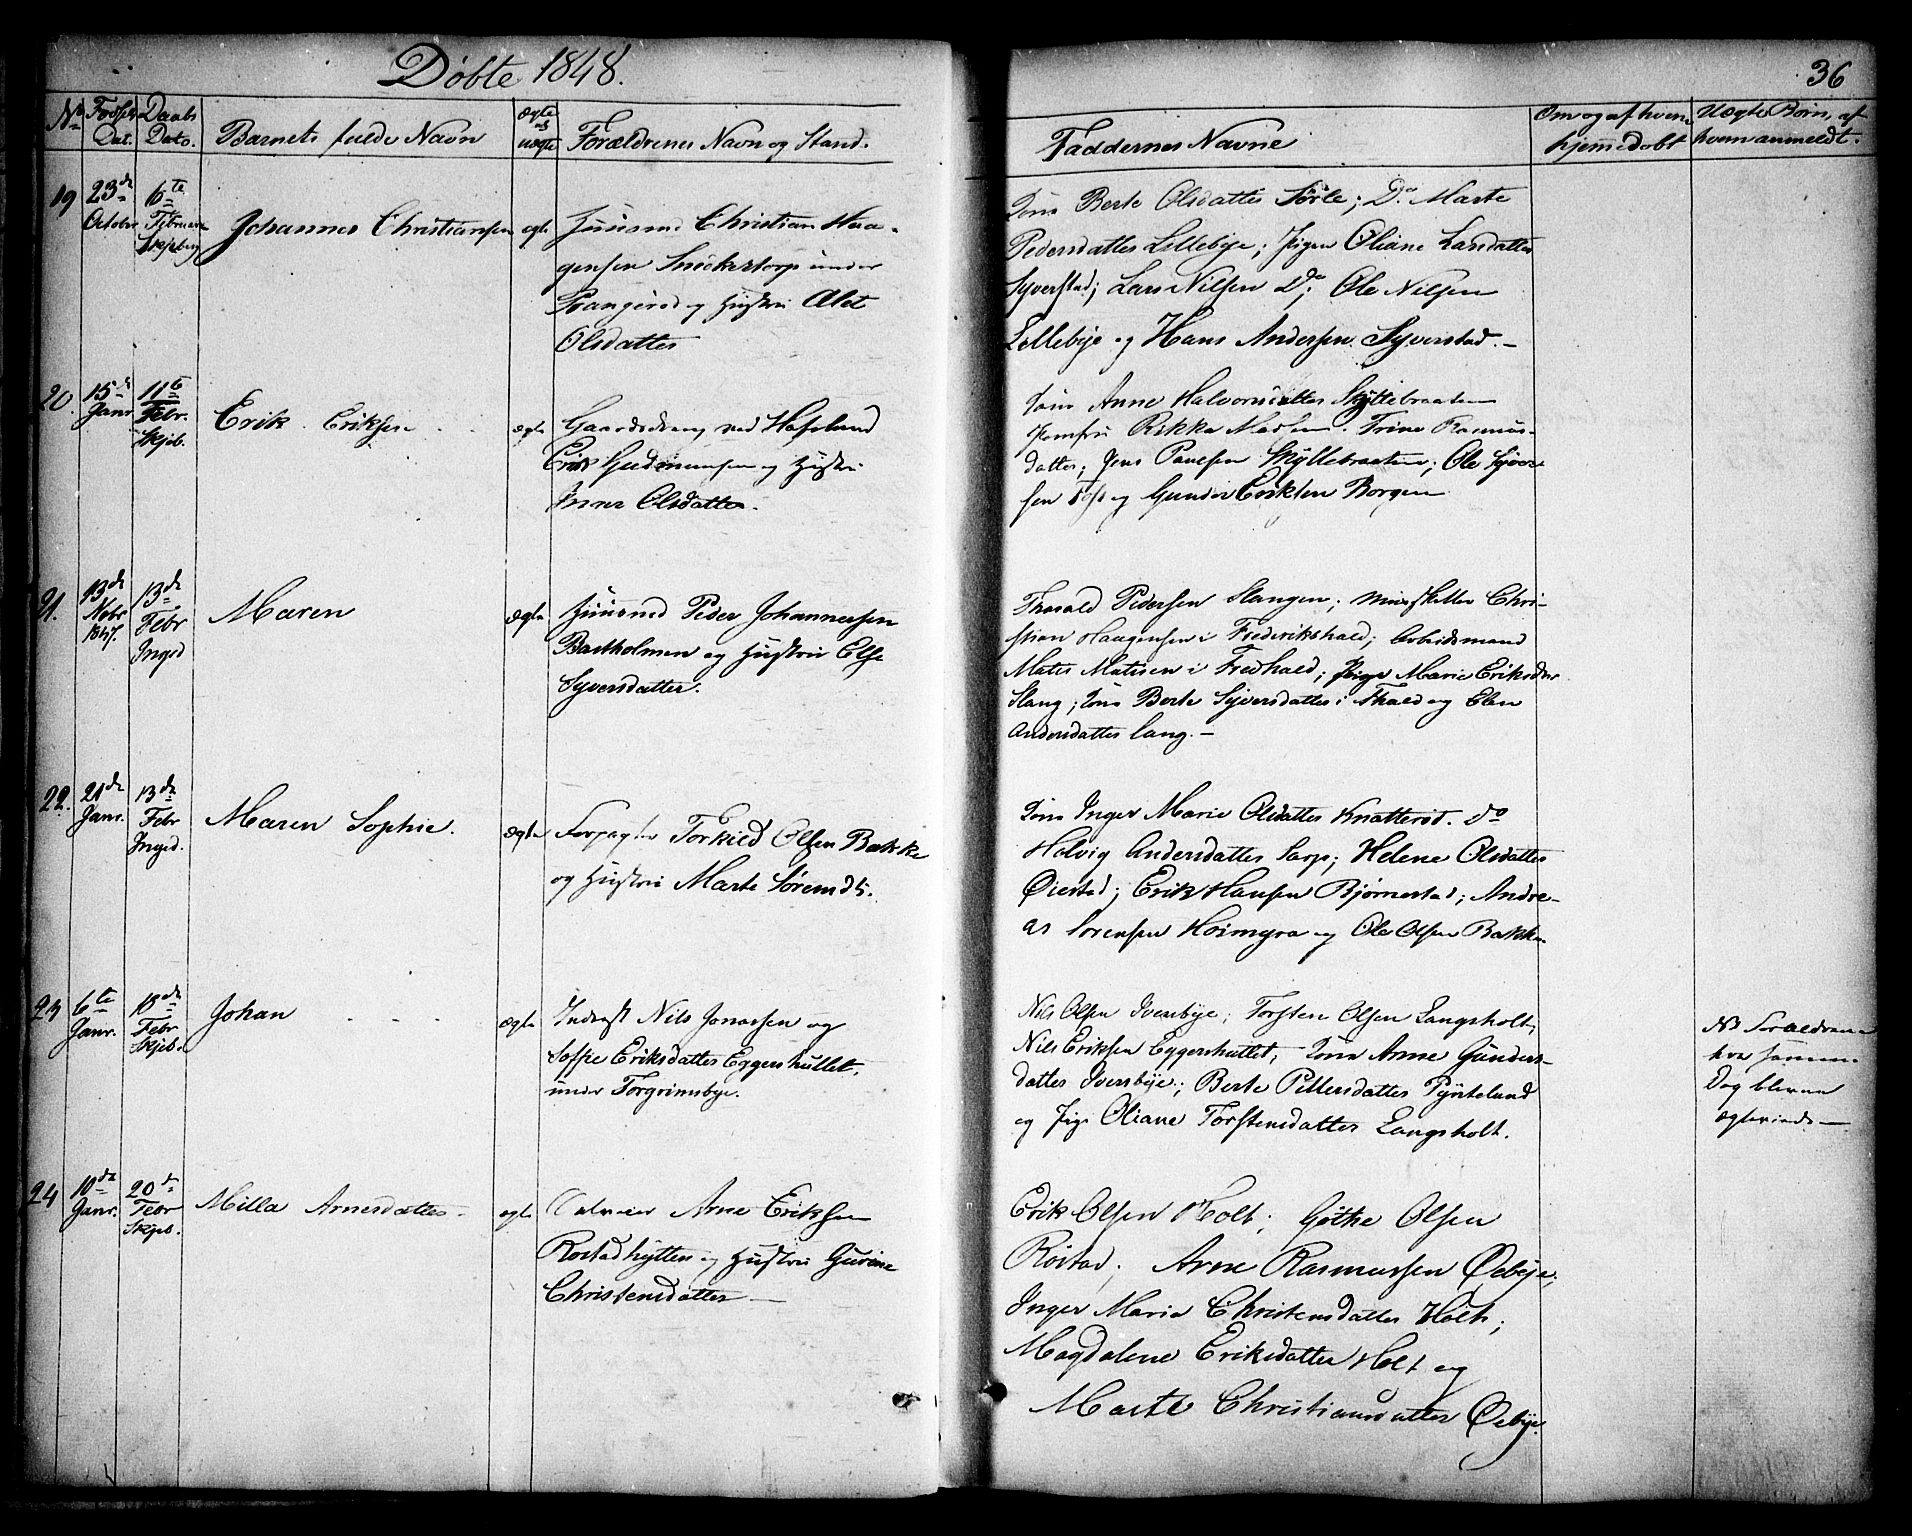 Døbte 1848.
36
No Fødsels Dat. Daabs Dato. Barnets fulde Navn ægte ell uægte Forældrenes Navn og Stand. Faddernes Navne Om og af hvem hjemmedøbt Uægte Børn, af hvem anmeldt.
19 23de October 6te Februar Skjeberg Johannes Christiansen ægte
Huusmd Christian Haa-
gensen Snekkertorp under
og Hustru Alet
Olsdatter
Kone Berte Olsdatter Sørle; Do Marte
Pedersdatter Lillebye; Pigen Oliane Larsdatter
Syverstad; Lars Nilsen Do; Ole Nilsen
Lillebye og Hans Andersen Syverstad. —
20. 15de Janr. 11te Febr. Skjeb. Erik Eriksen ægte
Gaardsdreng ved Hafslund
Erik Gudmunsen og Hustru
Olsdatter.
Kone Anne Halvorsdatter Myllebraaten
Jomfru Rikka Madsen. Trine Rasmus-
datter; Jens Paulsen Myllebraaten; Ole Syver-
sen og Gunder Eriksen Borgen
21. 13de Nobr 1847. 13de Febr Inged Maren ægte
Huusmd Peder Johannessen
Bartholmen og Hustru Else
Syversdatter.
Thorald Pedersen Slangen; Chri-
stian Haagensen i Frederikshald; Arbeidsmand
Mates Matisen i Fredhald; Pige Marie Eriksdtr
Slang; Kone Berte Syversdatter i Fhald og Elen
Andersdatter Slang. —
22. 21de Janr. 13de Febr Inged. Maren Sophie. ægte
Forpagter Torkild Olsen Bakke
og Hustru Marte Sørensdtr.
Kone Inger Marie Olsdatter Knatterød. Do
Helvig Andersdatter Sarp; Helene Olsdatter
Øiestad; Erik Hansen Bjørnestad; Andre-
as Sørensen Høimyra og Ole Olsen Bakke
23 6te Janr. 13de Febr Skjeb. Johan ægte
Inderst Nils Jonassen og
Soffie Eriksdatter Eggershullet.
under Torgrimsbye.
Nils Olsen Iversbye; Torsten Olsen Langsholt;
Nils Eriksen Eggershullet; Kone Anne Gunders-
datter Iversbye; Berte Pettersdatter Pynteslund
og Pige Oliane Torstensdatter Langsholt.
NB Forældrene
hvor samme
Dag blevne
ægteviede —
24 10de Janr. 20de Febr Skjeb. Milla Arnesdatter ægte
Arne Eriksen
Rostadhytten og Hustru Gurine
Christensdatter —
Erik Olsen Holt; Gøthe Olsen
Röstad; Arne Rasmussen Øebye;
Inger Maria Christensdatter Holt;
Magdalene Eriksdatter Holt og
Marte Christiansdatter Øebye.